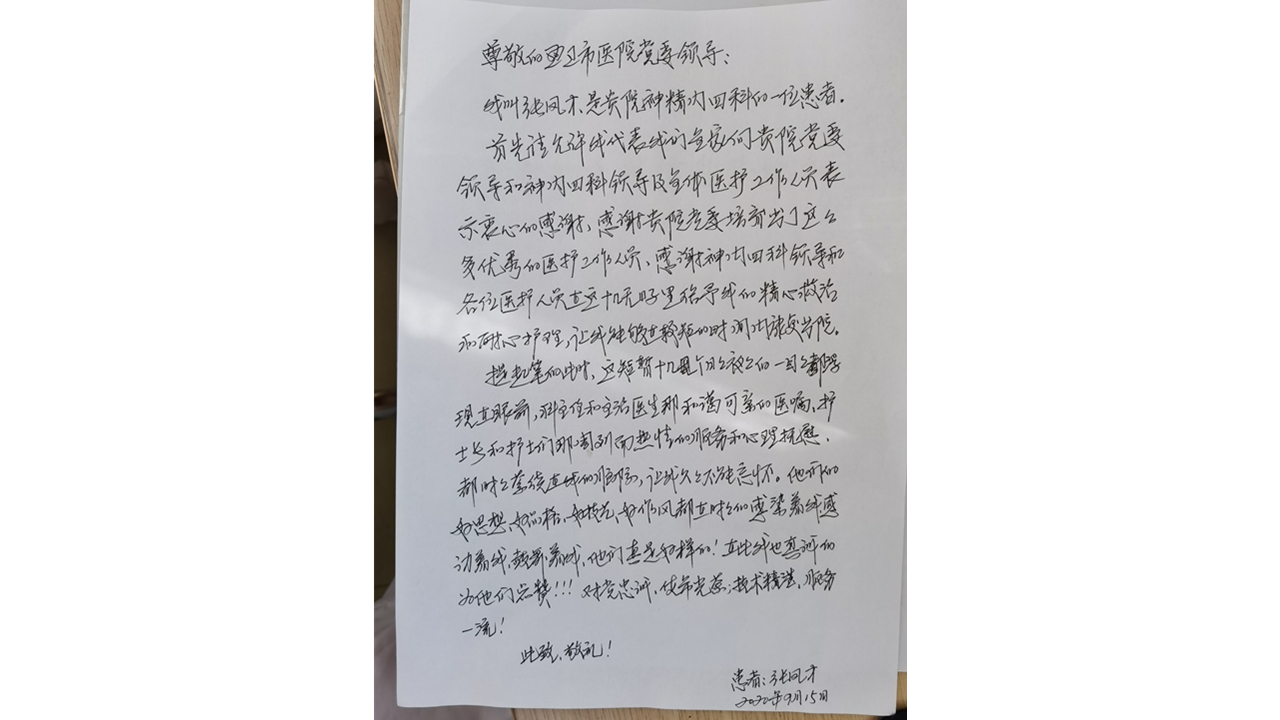 尊敬的卫市医院党委领导：
我叫张凤才，是贵院神精内四科的一位患者。
首先请允许我代表我的全家向贵院党委
领导和神内四科领导及全体医护工作人员表
示衷心的感谢，感谢贵院党委培育出了这么
多优秀的医护工作人员、感谢神内四科领导和
各位医护人员在这十几天时里给予我的精心救治
和耐心护理，让我能够在较短的时间内康复出院。
提起笔的此时，这短暂十几个日日夜夜的一目目都浮
现在眼前，科主任和主治医生那和谐可亲的医嘱、护
士长和护士们那周到而热情的服务和心理抚慰，
都时时萦绕在我的脑际，让我久久不能忘怀。他们的
好思想、好品格、好技艺、好作风都在时时的感染着我感
动着我，鼓舞着我，他们真是好样的！在此我也真诚的
为他们点赞！！！对党忠诚，使命光荣；技术精湛，服务
一流！
此致、敬礼！
患者：张凤才
2022年9月15日